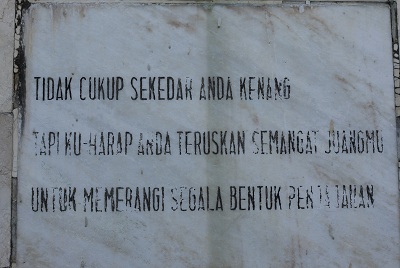 TIDAK CUKUP SEKEDAR ANDA KENANG
TAPI KU-HARAP ANDA TERUSKAN SEMANGAT JUANGMU
UNTUK MEMERANGI SEGALA BENTUK